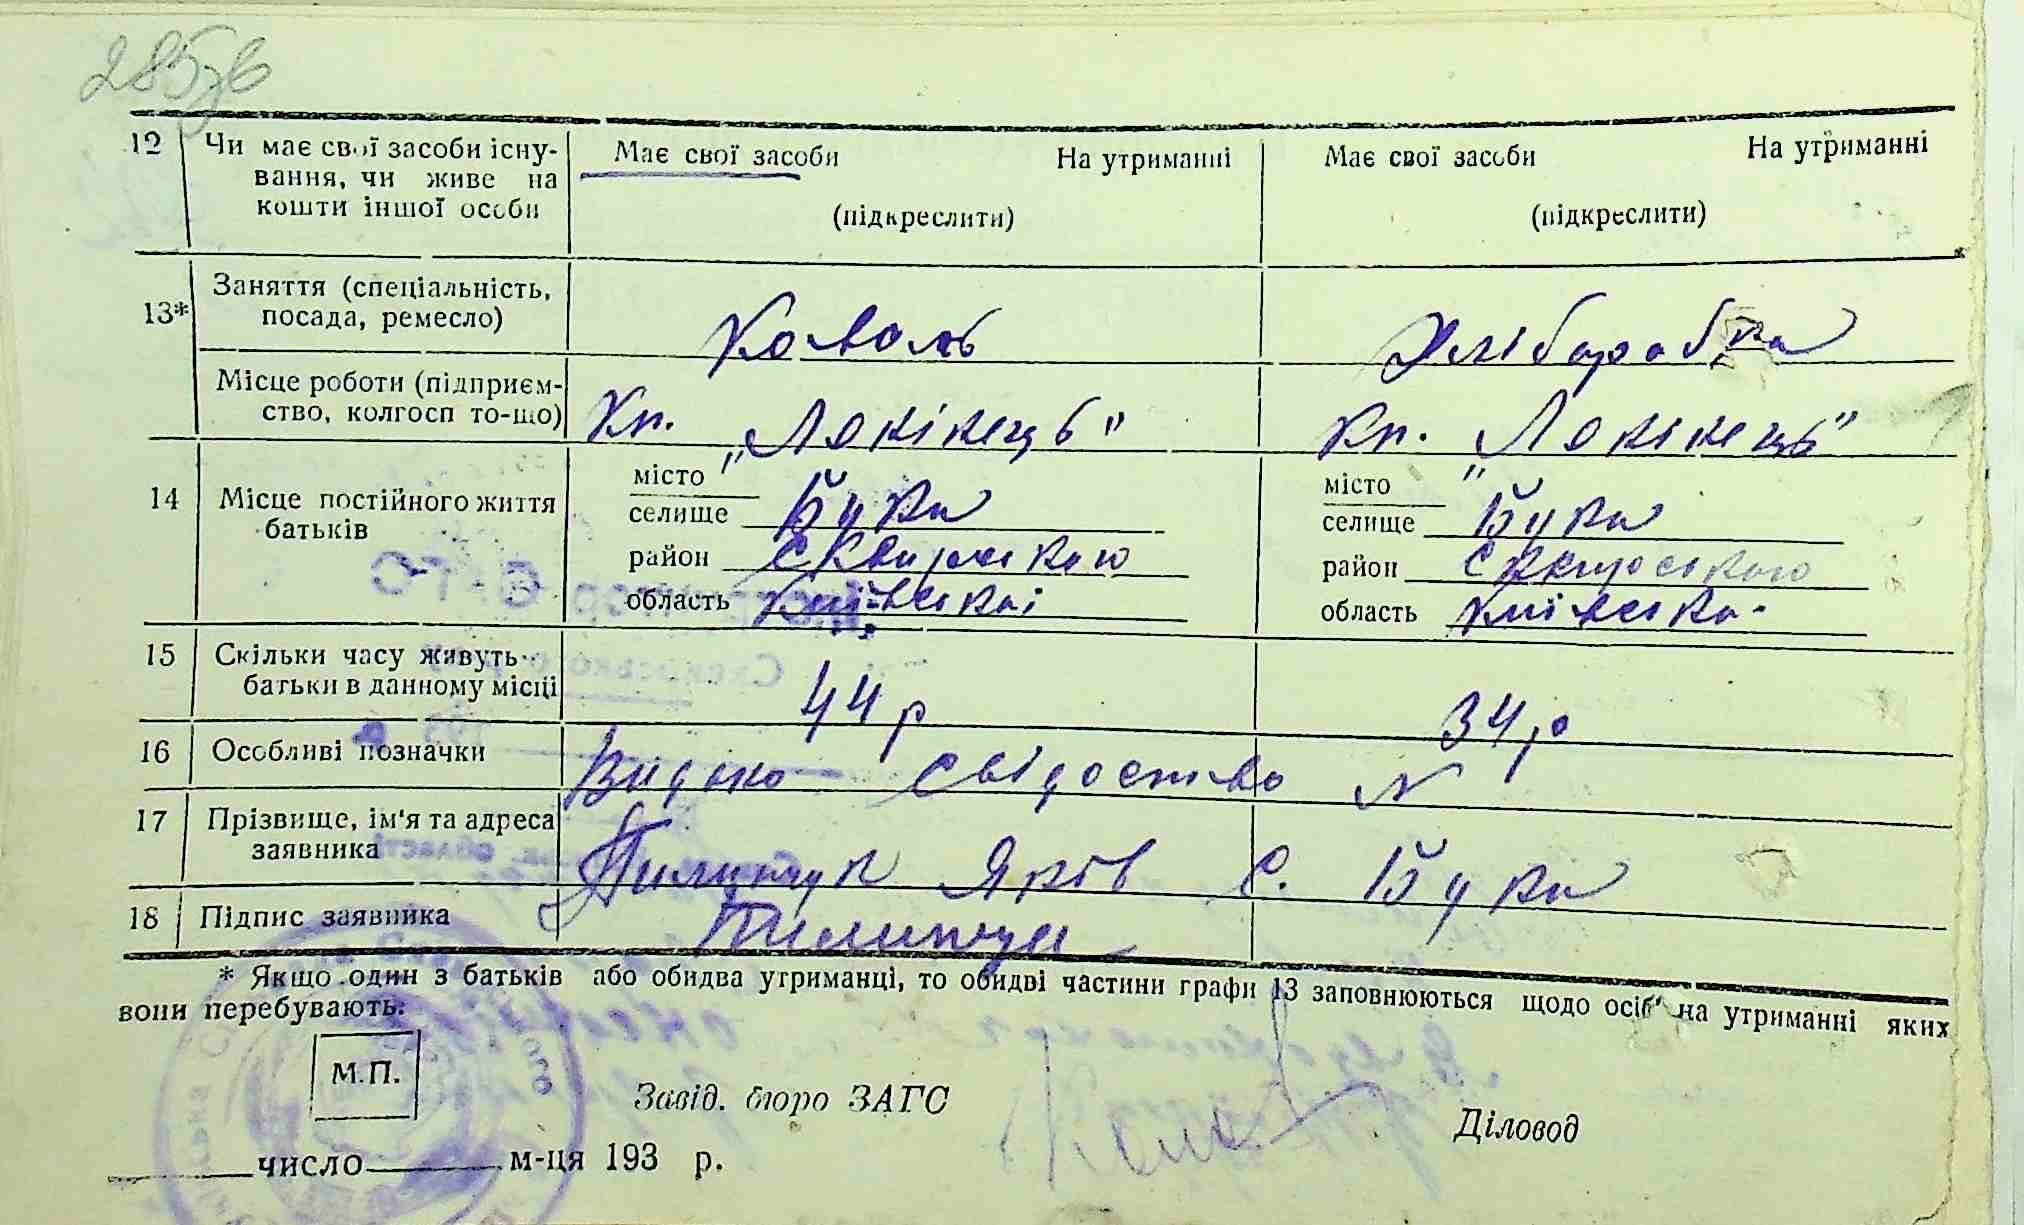 285зв
12 Чи має свої засоби існу- Має свої засоби На утриманні Має свої засоби На утриманні
вання, чи живе на
кошти іншої особи (підкреслити) (підкреслити)
13* Заняття (спеціальність,
посада, ремесло) Коваль Хліборобка
Місце роботи (підприєм-
ство, колгосп то-що) Кп. "Лекікець" Кп. "Лекікець"
14 Місце постійного життя місто місто
батьків селище Буки селище Буки
район Сквирського район Сквирського
область Київської область Київська
15 Скільки часу живуть
батьки в данному місці 44 р 34 р
16 Особливі позначки Видано свідоство N
17 Прізвище, ім'я та адреса
заявника Пилипчук Яків С. Буки
18 Підпис заявника Пилипчук
* Якщо один з батьків або обидва утриманці, то обидві частини графи 13 заповнюються щодо осіб на утриманні яких
вони перебувають.
М.П.
Завід. бюро ЗАГС
Діловод
число м-ця 193 р.